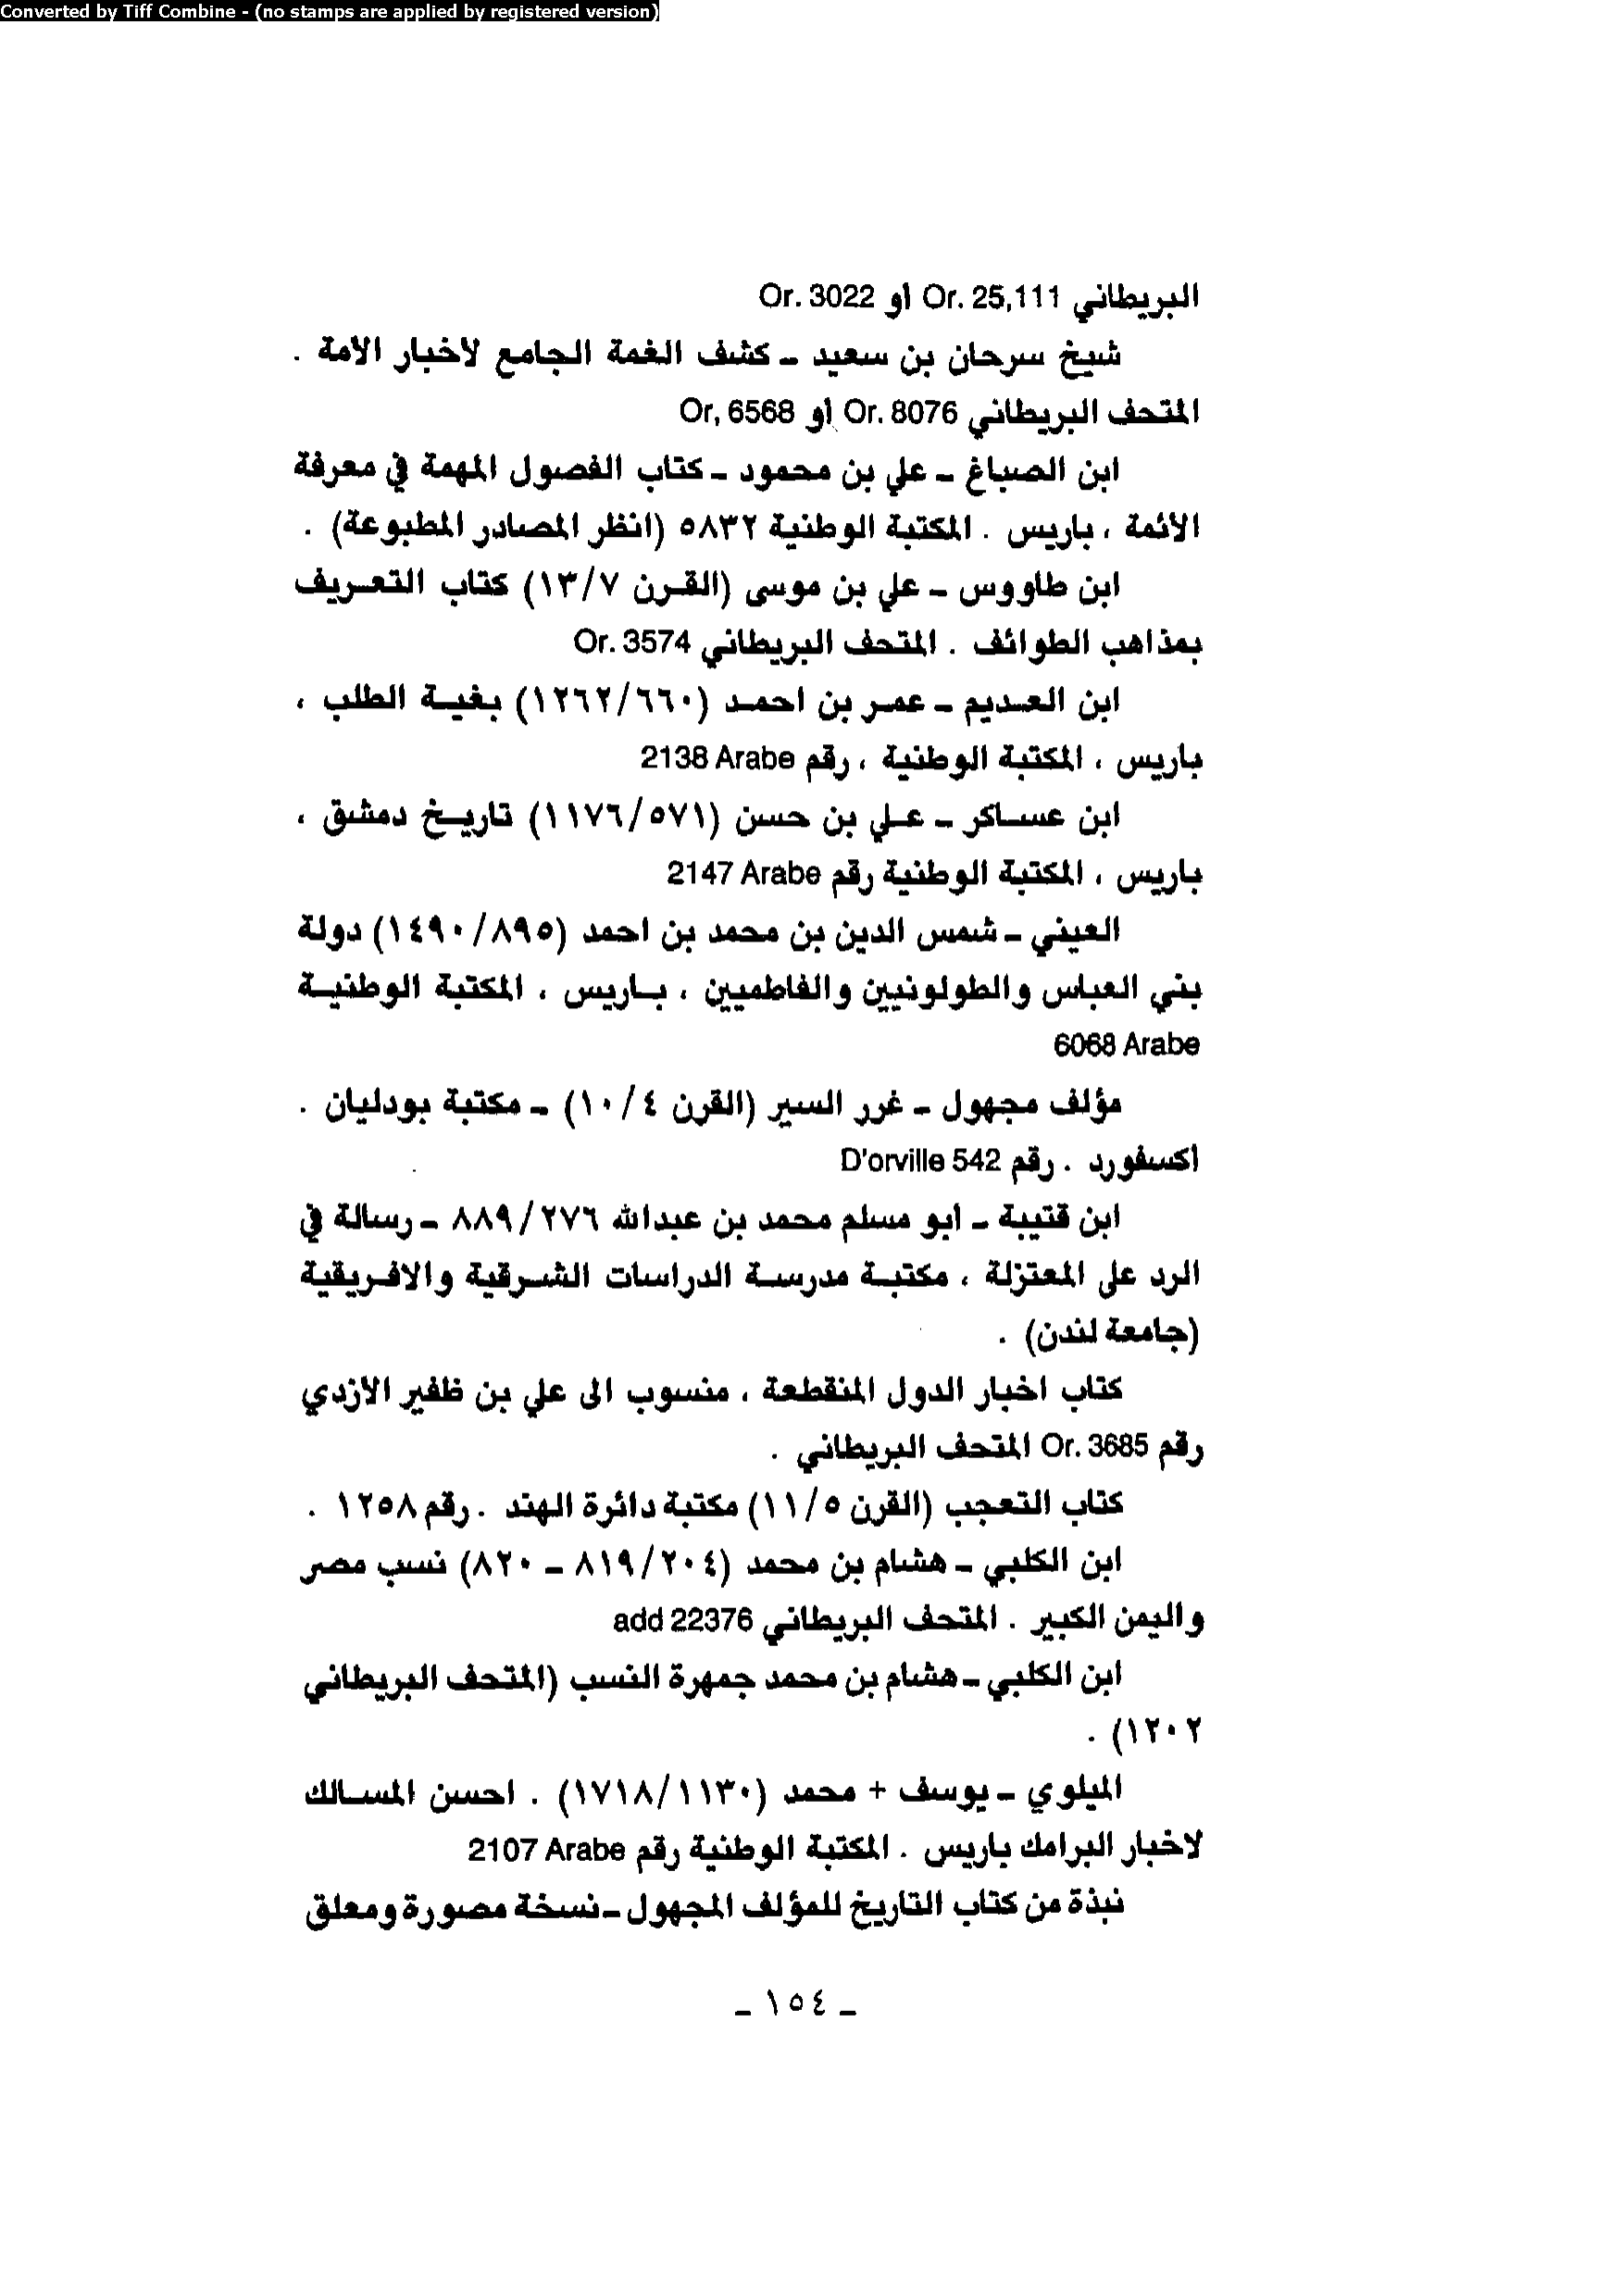 Converted by Tiff Combine - (no stamps are applied by registered version)
البريطاني Or. 25,111 أو Or. 3022
شيخ سرحان بن سعيد ـ كشف الغمة الجامع لاخبار الامة .
المتحف البريطاني Or. 8076 أو Or, 6568
ابن الصباغ ـ علي بن محمود ـ كتاب الفصول المهمة في معرفة
الائمة ، باريس . المكتبة الوطنية ٥٨٣٢ (انظر المصادر المطبوعة) .
ابن طاووس ـ علي بن موسى (القرن ١٣/٧) كتاب التعريف
بمذاهب الطوائف . المتحف البريطاني Or. 3574
ابن العديم ـ عمر بن احمد (١٢٦٢/٦٦٠) بغية الطلب ،
باريس ، المكتبة الوطنية ، رقم 2138 Arabe
ابن عساكر ـ علي بن حسن (١١٧٦/٥٧١) تاريخ دمشق ،
باريس ، المكتبة الوطنية رقم 2147 Arabe
العيني ـ شمس الدين بن محمد بن احمد (١٤٩٠/٨٩٥) دولة
بني العباس والطولونيين والفاطميين ، باريس ، المكتبة الوطنية
6068 Arabe
مؤلف مجهول ـ غرر السير (القرن ١٠/٤) ـ مكتبة بودليان .
اكسفورد . رقم D'orville 542
ابن قتيبة ـ ابو مسلم محمد بن عبدالله ٨٨٩/٢٧٦ ـ رسالة في
الرد على المعتزلة ، مكتبة مدرسة الدراسات الشرقية والافريقية
(جامعة لندن) .
كتاب اخبار الدول المنقطعة ، منسوب الى علي بن ظفير الازدي
رقم Or. 3685 المتحف البريطاني .
كتاب التعجب (القرن ١١/٥) مكتبة دائرة الهند . رقم ١٢٥٨ .
ابن الكلبي ـ هشام بن محمد (٨١٩/٢٠٤ ـ ٨٢٠) نسب مصر
واليمن الكبير . المتحف البريطاني add 22376
ابن الكلبي ـ هشام بن محمد جمهرة النسب (المتحف البريطاني
١٢٠٢) .
الميلوي ـ يوسف + محمد (١٧١٨/١١٣٠) . احسن المسالك
لاخبار البرامك باريس . المكتبة الوطنية رقم 2107 Arabe
نبذة من كتاب التاريخ للمؤلف المجهول ـ نسخة مصورة ومعلق
ـ ١٥٤ ـ